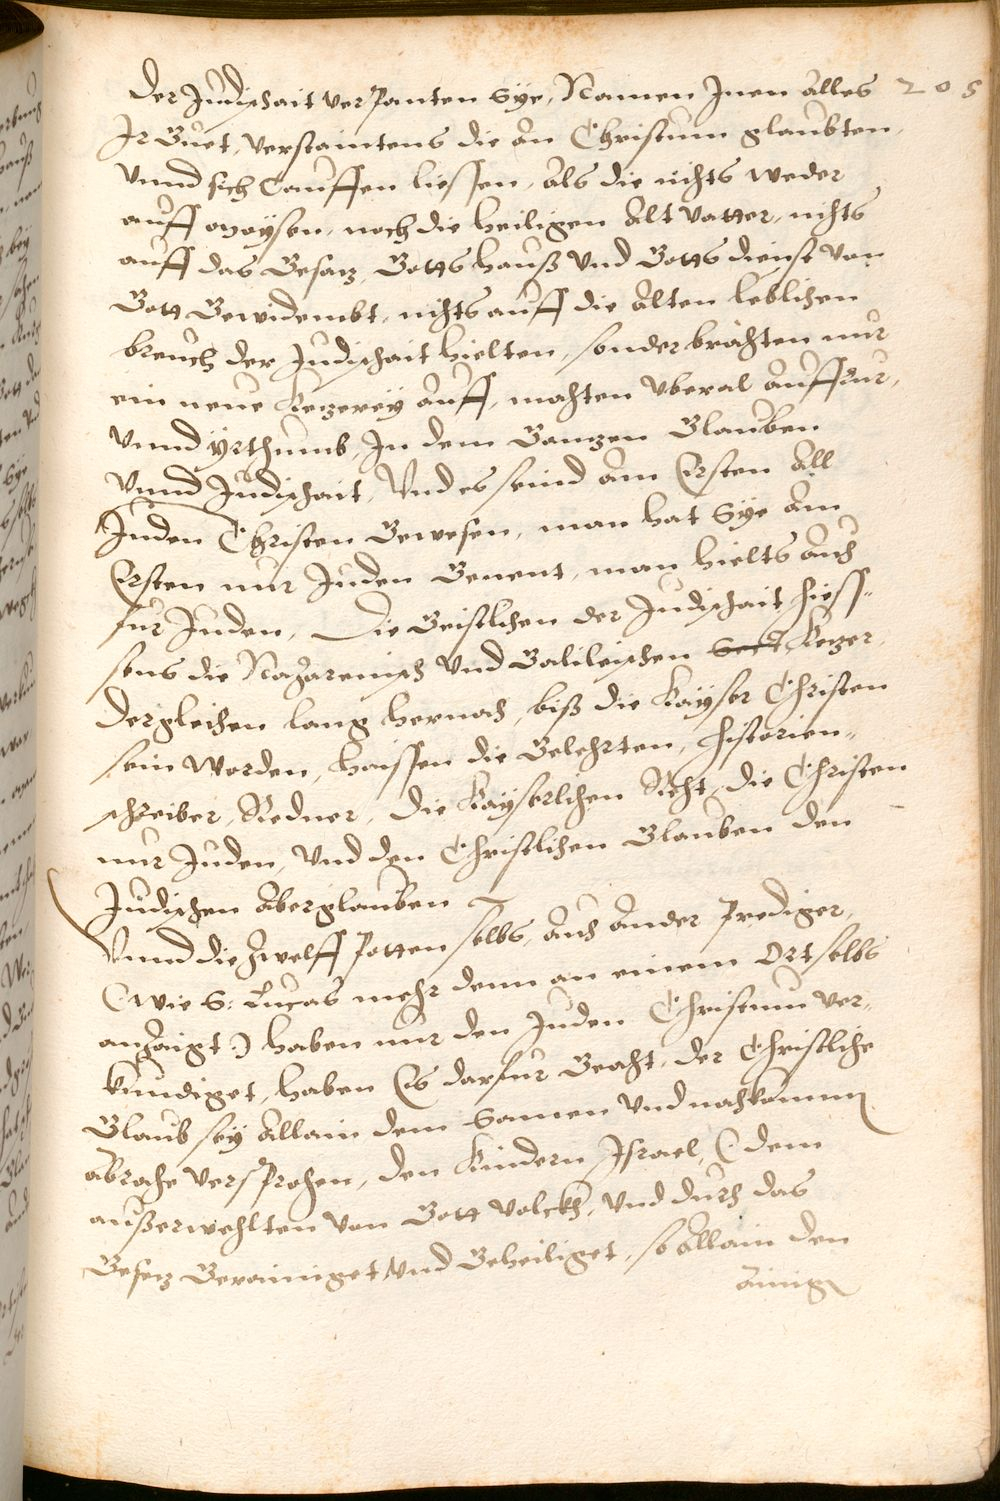 der Judischait verpanten Sye, Namen Jnen alles 205
Jr Guet, verstaintens die an Christum glaubten,
Vnnd sich Tauffen liessen, als die nichts weder
auff Moysen, noch die heiligen Alt vatter, nichts
auff das Gesaz, Gotts hauß vnd Gotts dienst von
Gott Gewidembt, nichts auff die alten loblichen
breuch der Judischait hielten, sonder brachten nur
ein neue Kezerey auff, machten vberal auffrur,
Vnnd yrthumb, Jn dem Ganzen Glauben
Vnnd Judischait, Vnd es seind am Ersten all
Juden Christen Gewesen, man hat Sye am
Ersten nur Juden Genent, man hielts auch
fur Juden, Die Geistlichen der Judischait hiess-
sens die Nazarenisch vnd Galileischen Sect Kezer
dergleichen lang hernach, biß die Kayser Christen
sein worden, haissen die Gelehrten, historien-
schreiber, Redner, die Kayserlichen Recht, die Christen
nur Juden, Vnd den Christlichen Glauben den
Judischen aberglauben
Vnnd die Zwelff Potten selbs, auch ander Prediger,
(wie S: Lucas mehr denn an einem Ort selbs
anzaigt:) haben nur den Juden Christum ver-
kundiget, haben Es darfur Geacht, der Christliche
Glaub sey allain dem Samen vnd nachkommen
abrahe versprochen, den Kindern Israel, (dem
außerwehlten von Gott volckh, Vnd durch das
Gesez Gerainiget, vnd Geheiliget, so allain den
ainigen